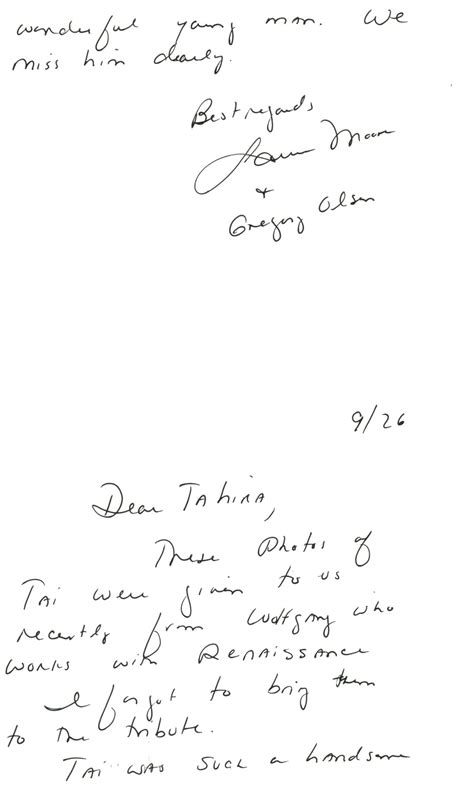 wonderful young man. We
miss him dearly.
Best regards
+
Gregory Olsen
9/26
Dear Tahira,
These photos of
Tai were given to us
recently from Wolfgang who
works with Renaissance
I forgot to bring them
to the tribute.
Tai was such a handsome